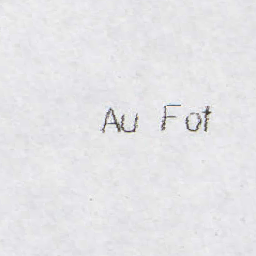 Au Fot